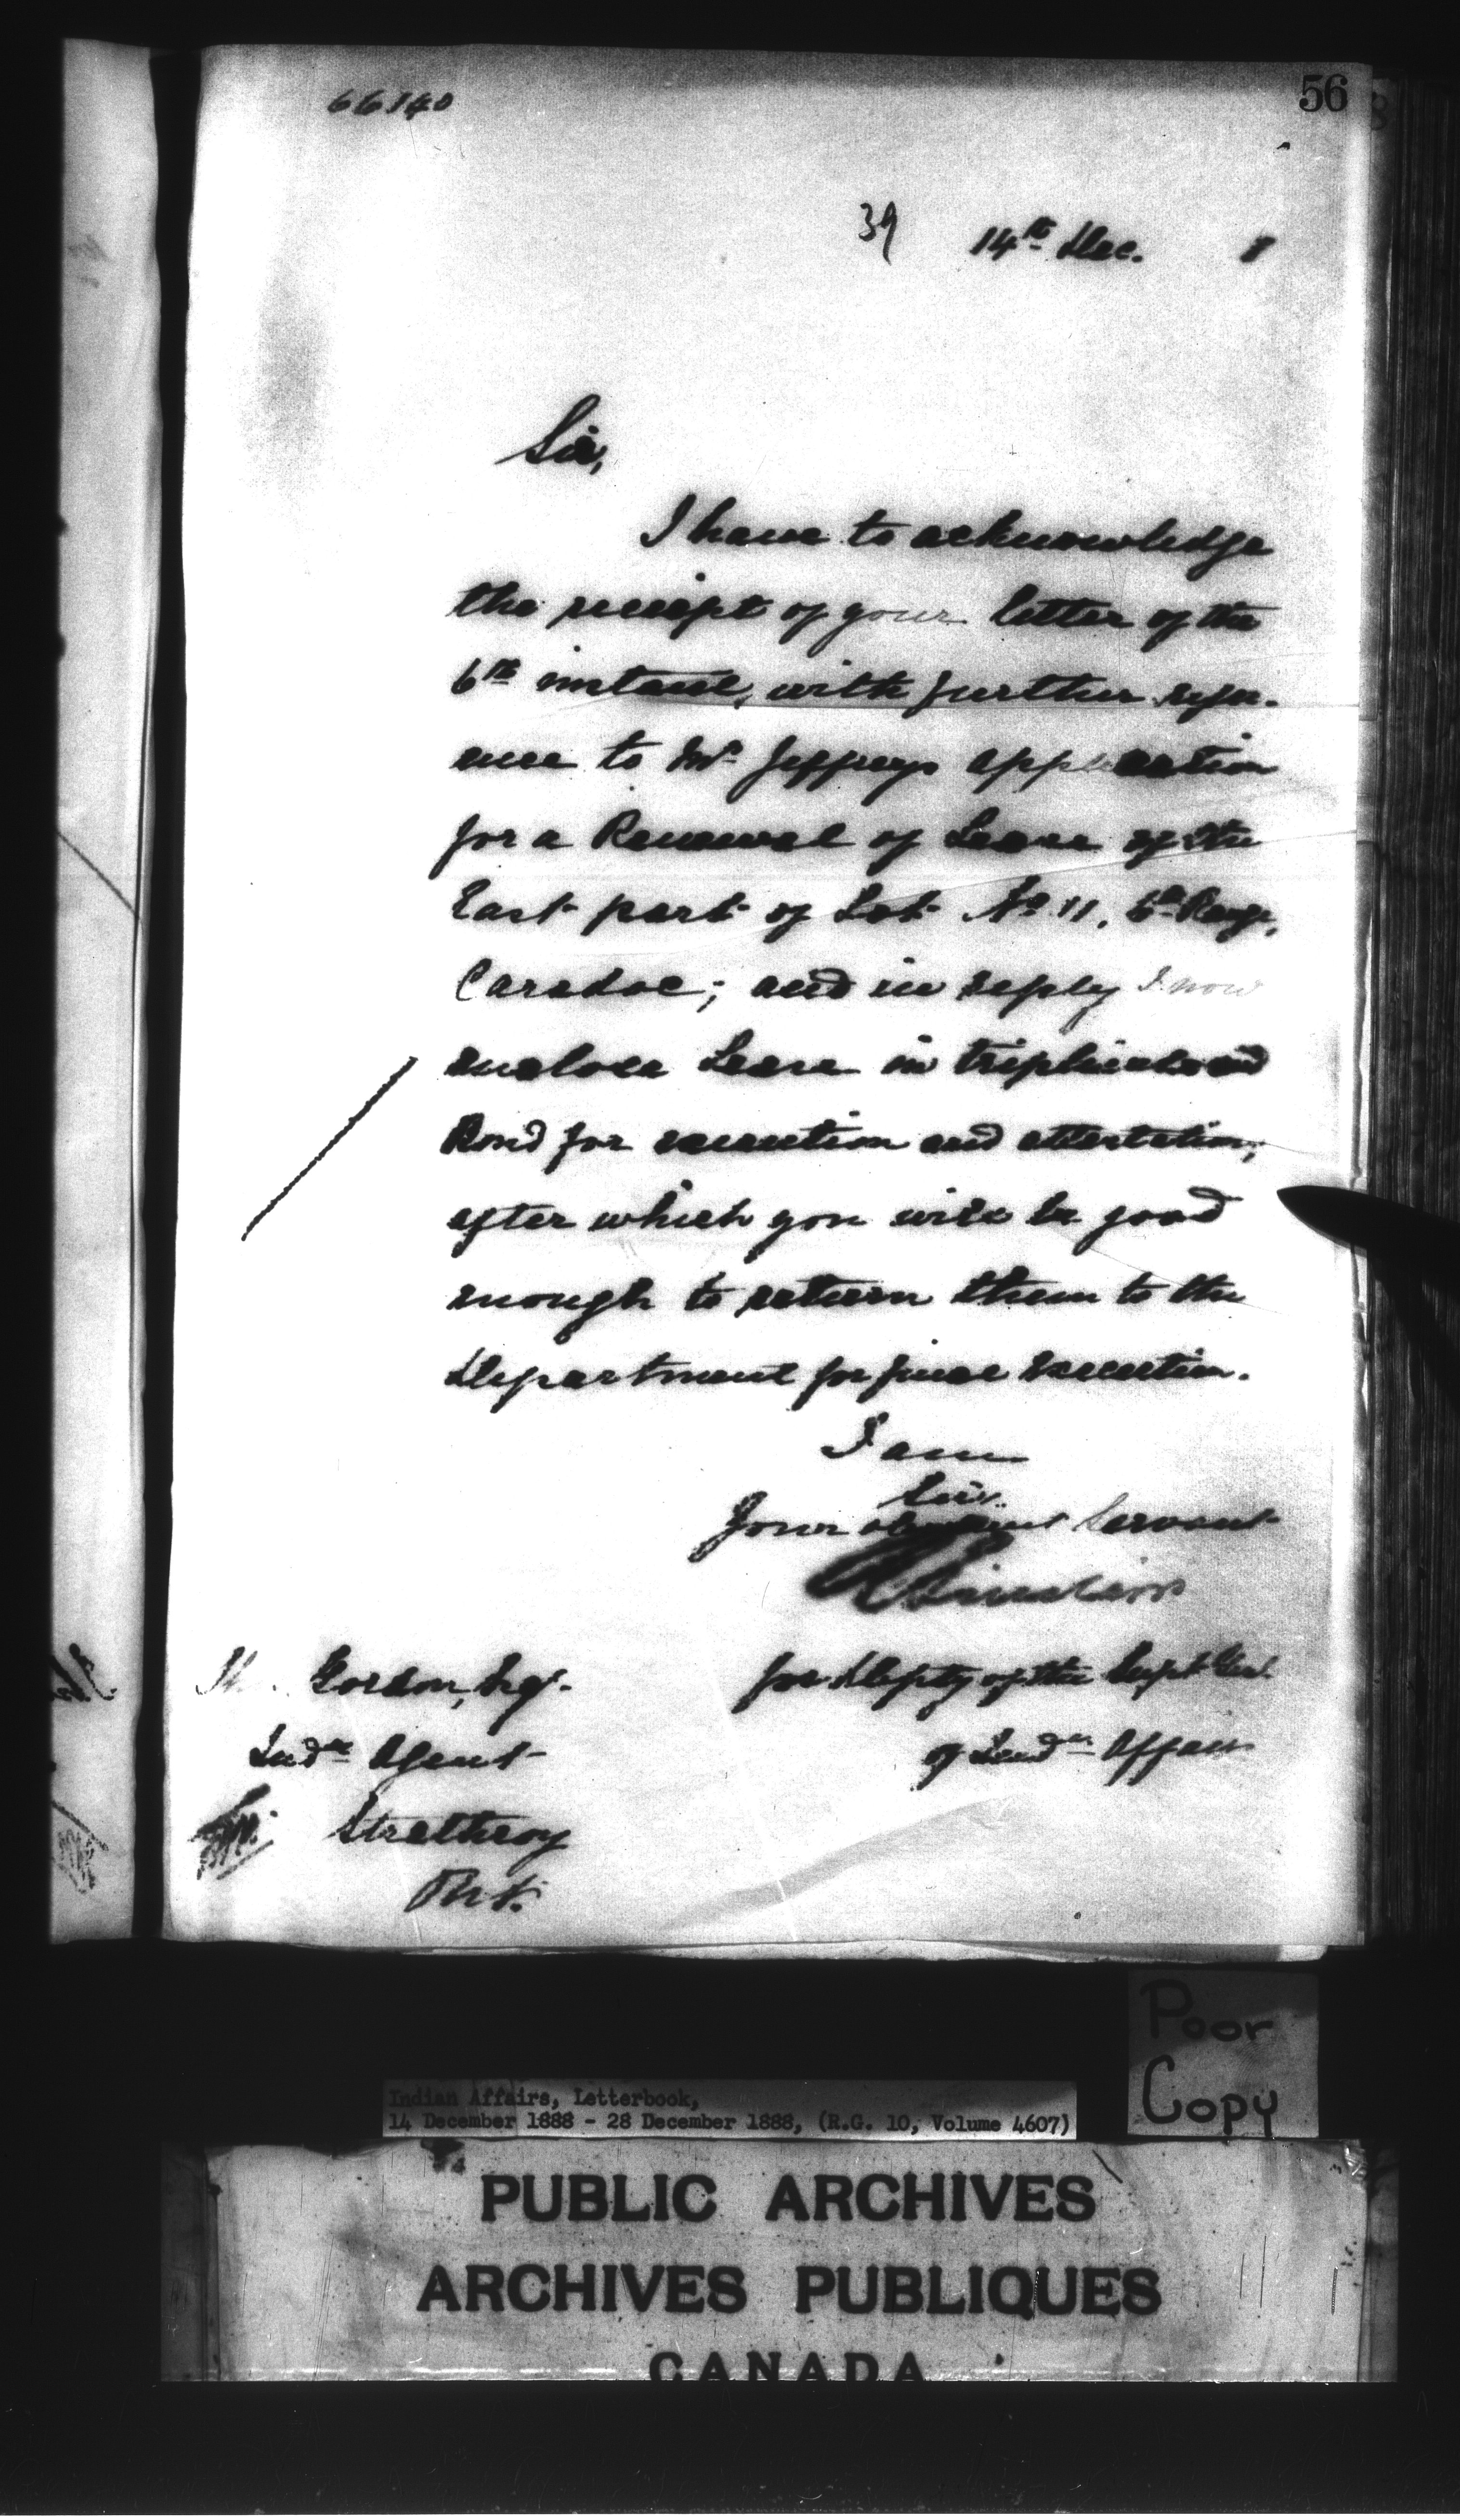 66140
56
39 14th Dec. 8
Sir,
I have to acknowledge
the receipt of your letter of the
6th instant, with further refer-
ence to Mr Jeffreys application
for a Renewal of Lease of the
East part of Lot No 11, 6th Range,
Caradoc; and in reply I now
enclose Lease in triplicate and
Bond for execution and attestation;
after which you will be good
enough to return them to the
Department for final execution.
I am
Sir,
Your obedient Servant
R Sinclair
for Depty of the Supt Genl.
of Indn Affairs
Gordon, Esq.
Indn Agent
Strathroy
Ont.
Poor
Copy
Indian Affairs, Letterbook,
14 December 1888 - 28 December 1888, (R.G. 10, Volume 4607)
PUBLIC ARCHIVES
ARCHIVES PUBLIQUES
CANADA